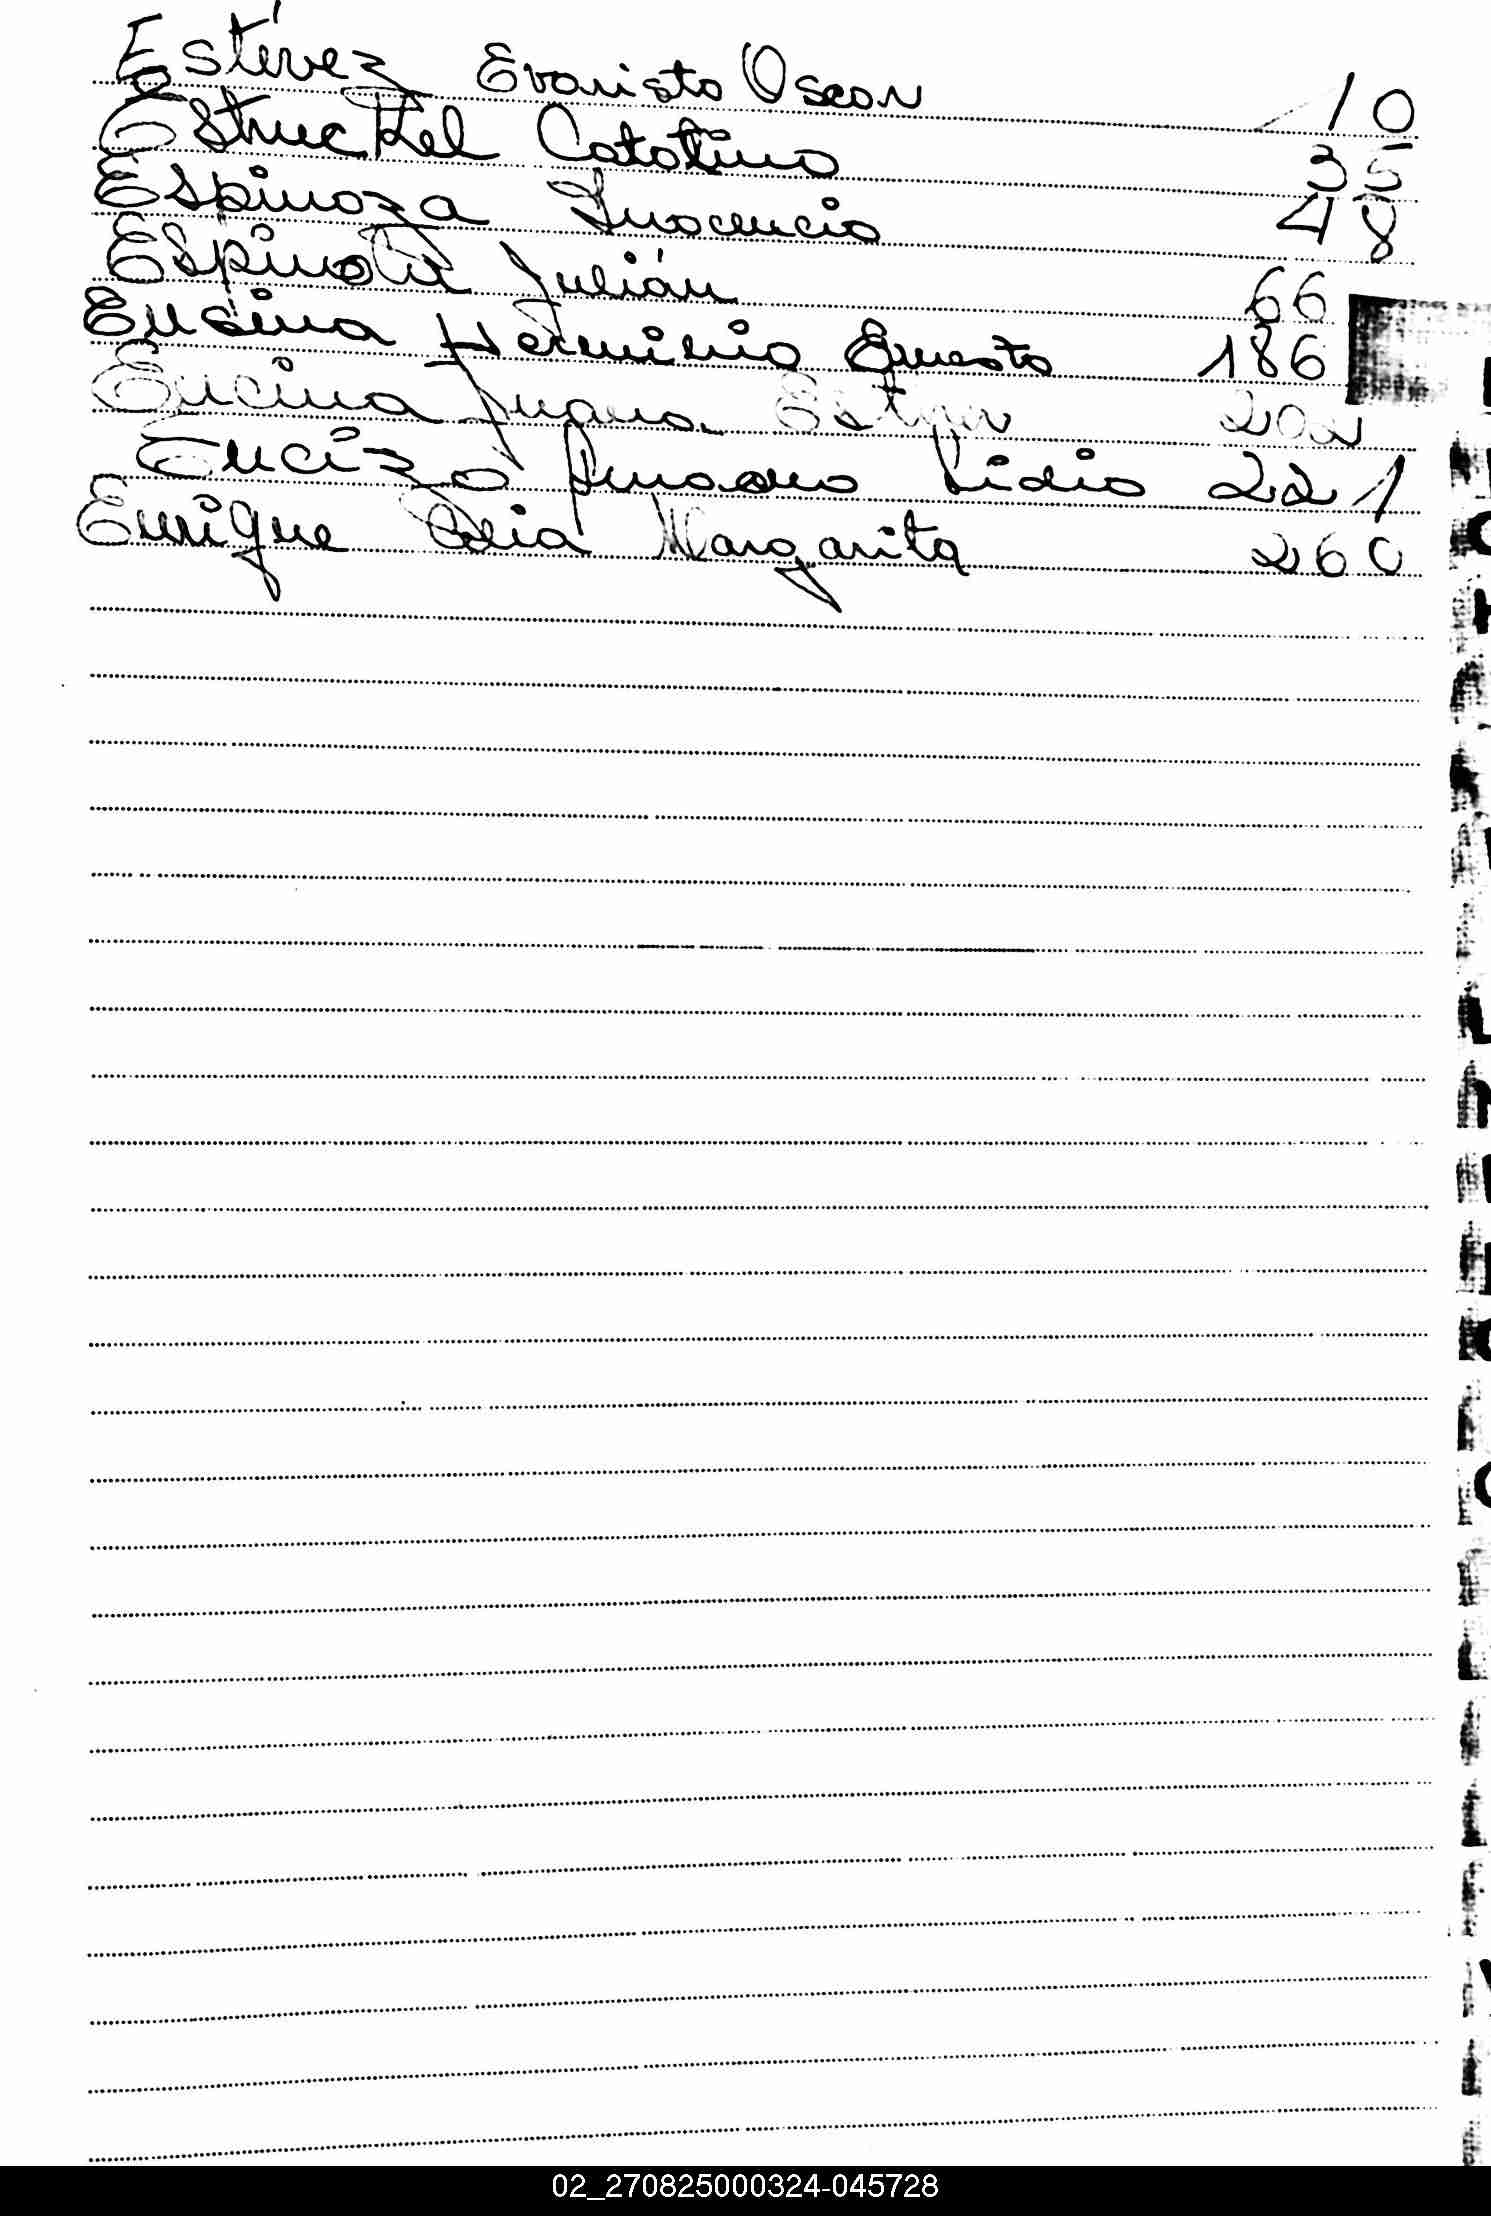 Estévez Evaristo Oscar 10
Estruckel Catalina 35
Espinoza Inocencio 48
Espinola Julián 66
Encina Herminio Ernesto 186
Encina Juana Ester 202
Enciza Lidia 221
Enrique Delia Margarita 260
02_270825000324-045728